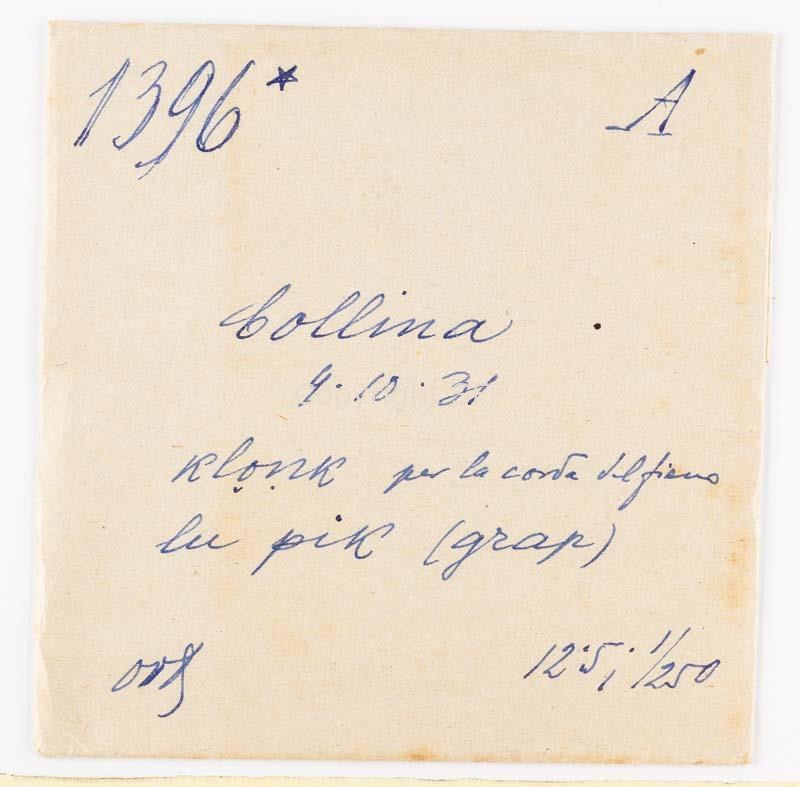 1396* A
Collina
9.10.31
klọṇk per la corda del fieno
lu pik (grap)
12.5; 1/250